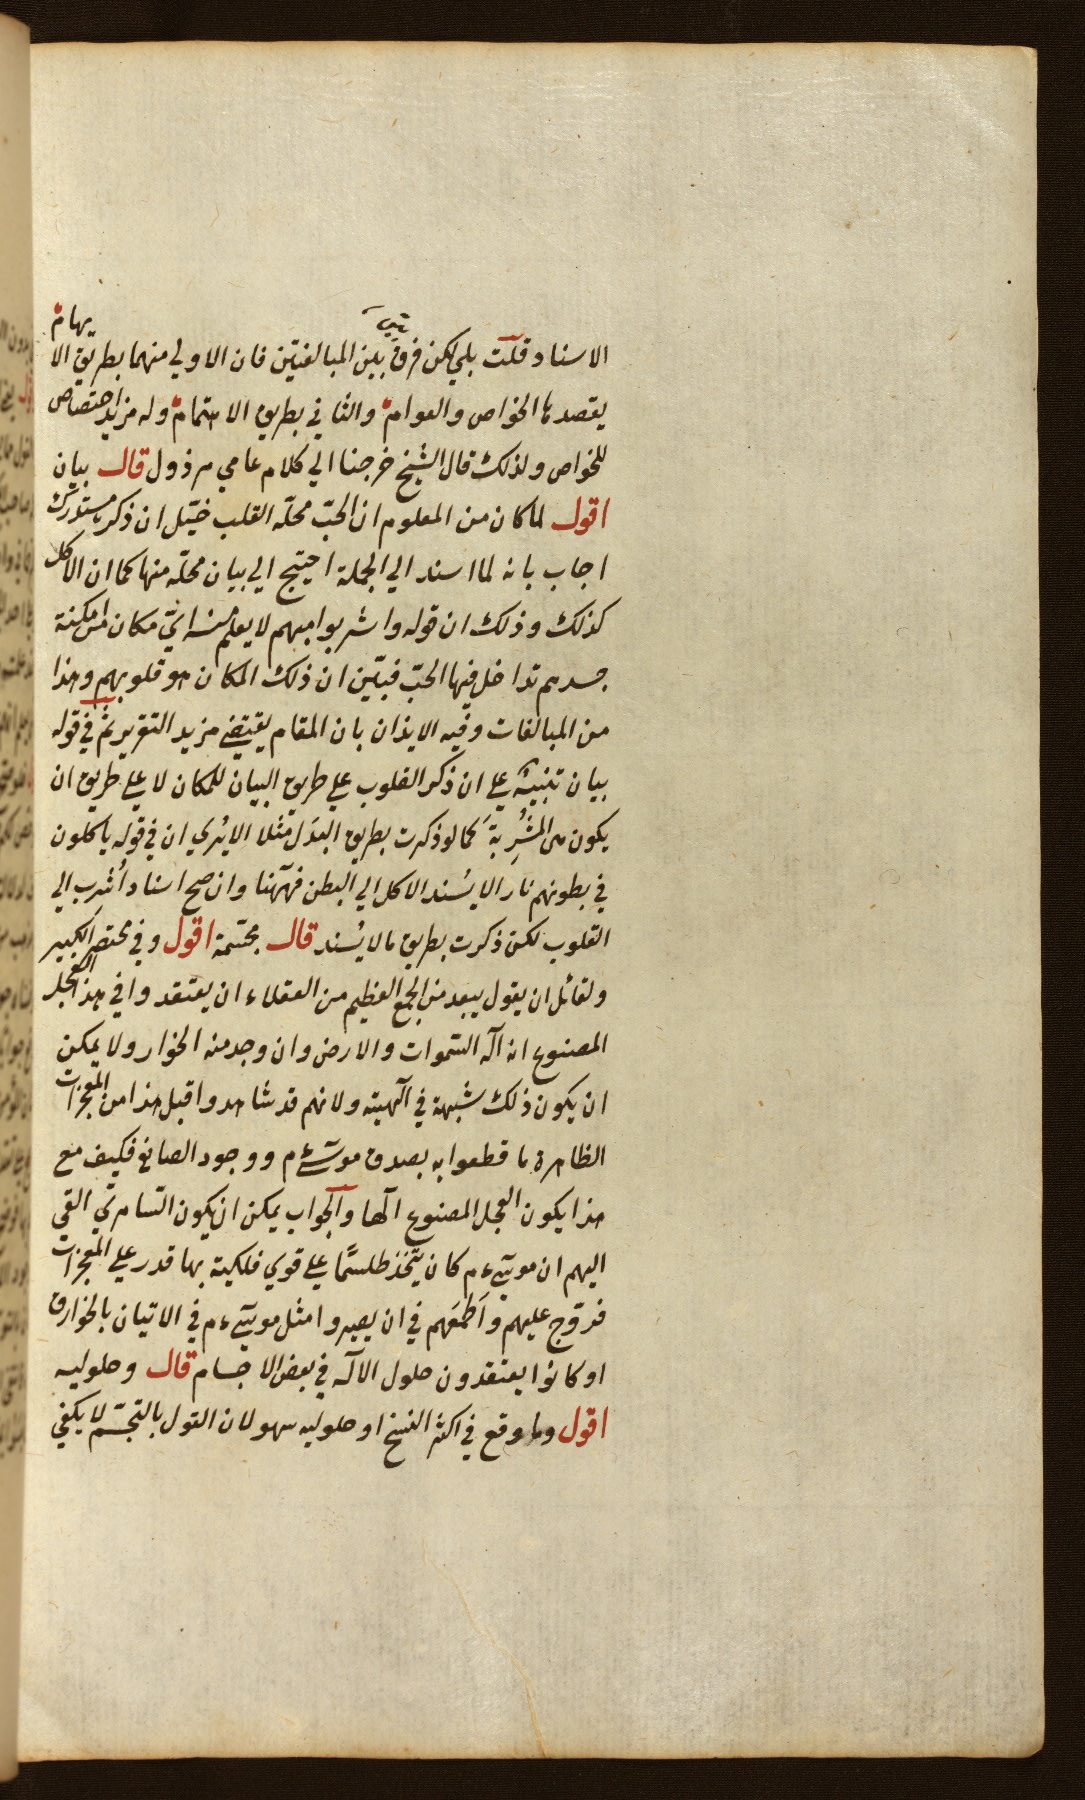 الاسناد قلت بلي لكن فرق بين المبالغتين فان الاولي منهما بطريق الا يهام
يقصدها الخواص والعوام والثاني بطريق الاهتمام وله مزيد اختصاص
للخواص ولذلك قال الشيخ خرجنا الي كلام عامي مرذول قال بيان
اقول لما كان من المعلوم ان الحبّ محلّه القلب خيّل ان ذكره مستدرك
اجاب بانه لما اسند الي الجملة احتيج الي بيان محلّه منها كما ان الاكل
كذلك وذلك ان قوله واشربوا مبهم لا يعلم منه ايّ مكان من امكنة
جسدهم تداخل فيها الحبّ فبيّن ان ذلك المكان هو قلوبهم وهذا
من المبالغات وفيه الايذان بان المقام يقتضي مزيد التقرير ثمّ في قوله
بيان تنبيهٌ علي ان ذكر القلوب علي طريق البيان للمكان لا علي طريق ان
يكون هي المُشْرِبةَ كما لو ذكرت بطريق البدَل مثلا الا يُري ان في قوله ياكلون
في بطونهم نارا لا يُسند الاكل الي البطن فهٓهنا وان صح اسناد اُشرب الي
القلوب لكن ذكرت بطريق ما لا يُسند قال مجسّمة اقول وفي مختصر الكبير
ولقائل ان يقول يبعد من الجمع العظيم من العقلاء ان يعتقدوا في هذا العجل
المصنوع انه آله السّموات والارض وان وجد منه الخوار ولا يمكن
ان يكون ذلك شبهة في آلهيته ولانهم قد شاهدوا قبل هذا من المعجزات
الظاهرة ما قطعوا به بصدق موسي ءم ووجود الصانع فكيف مع
هذا يكون العجل المصنوع آلها والجواب يمكن ان يكون السّامريّ القي
اليهم ان موسي ءم كان يتّخذ طلسمًا علي قوي فلكية بها قدر علي المعجزات
فروّج عليهم واَطمَعهم في ان يصيروا مثل موسي ءم في الاتيان بالخوارق
او كانوا يعتقدون حلول الآله في بعض الاجسام قال وحلوليه
اقول وما وقع في اكثر النسخ او حلوليه سهو لان القول بالتجسّم لا يكفي